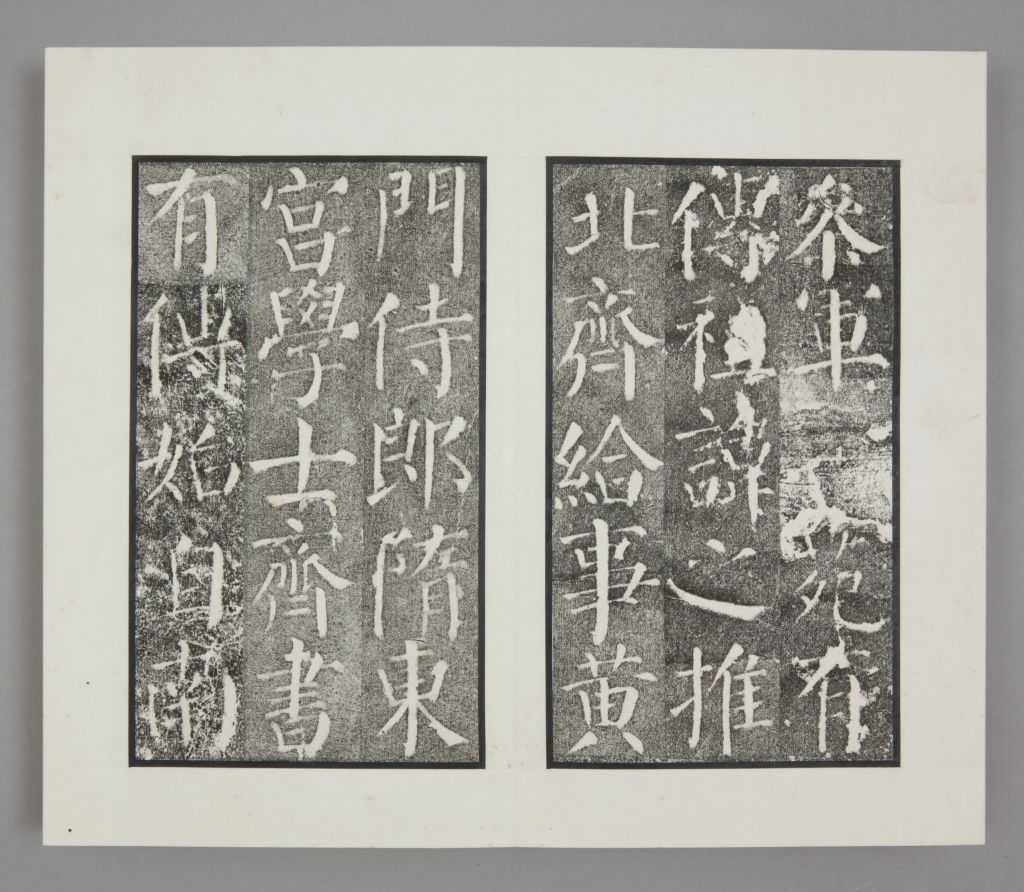 參軍苑有
傳祖諱之推
北齊給事黃
門侍郎隋東
宮學士齊書
有傳始自南